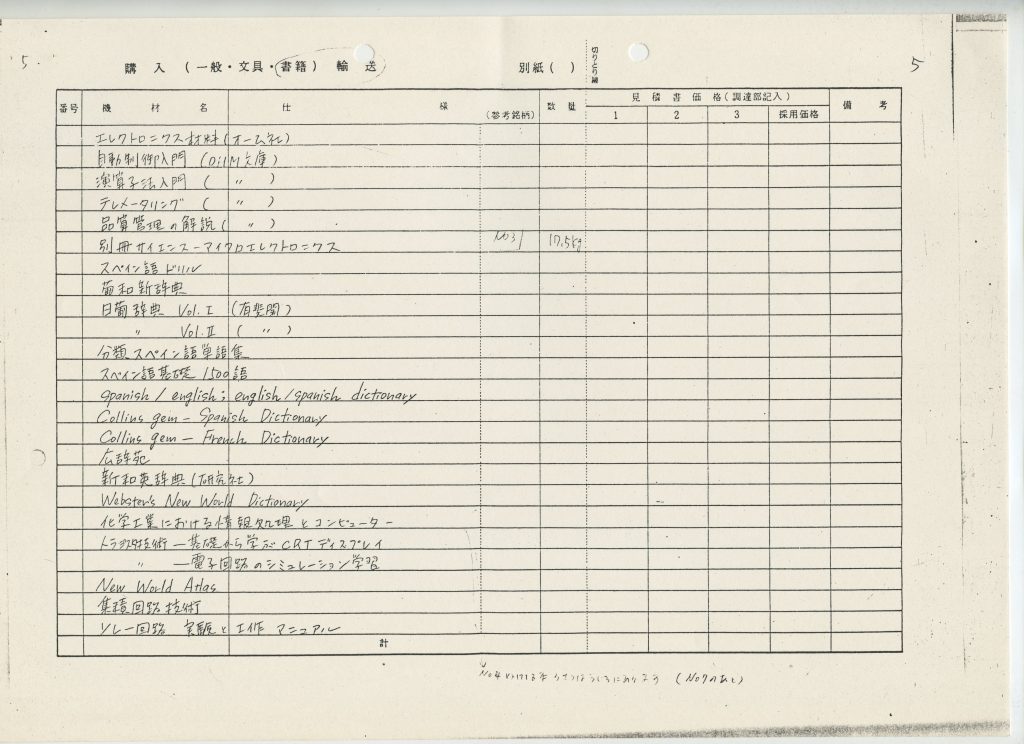 5.
購入 (一般・文具・書籍) 輸送 別紙( ) 切りとり線 5
番号 機材名 仕様 (参考銘柄) 数量 見積書価格(調達部記入) 備考
1 2 3 採用価格
エレクトロニクス材料(オーム社)
自動制御入門 (OHM文庫)
演算子法入門 ( 〃 )
テレメータリング ( 〃 )
品質管理の解説 ( 〃 )
別冊サイエンス-マイクロエレクトロニクス No 31 17.5kg
スペイン語ドリル
葡和新辞典
日葡辞典 Vol. I (有斐閣)
〃 Vol. II ( 〃 )
分類スペイン語単語集
スペイン語基礎 1500語
spanish / english ; english / spanish dictionary
Collins gem - Spanish Dictionary
Collins gem - French Dictionary
広辞苑
新和英辞典 (研究社)
Webster's New World Dictionary
化学工業における情報処理とコンピューター
トラ技術 - 基礎から学ぶCRTディスプレイ
〃 - 電子回路のシミュレーション学習
New World Atlas
集積回路技術
リレー回路 実験と工作マニュアル
計
No4 (No7のあと)